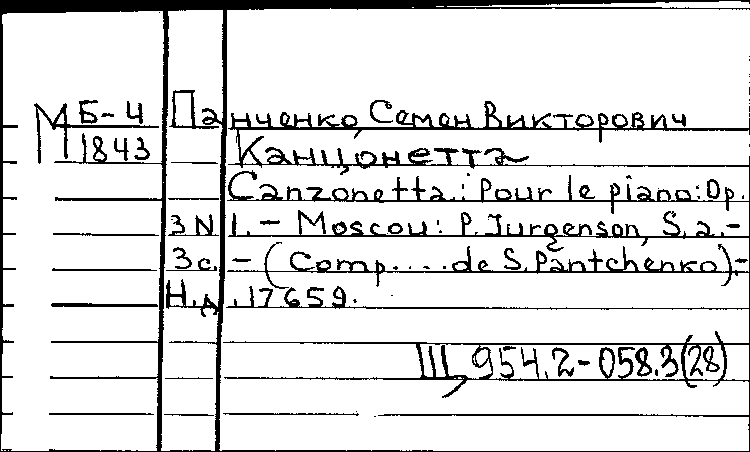 М Б-4 Панченко, Семен Викторович
1843 Канцонетта
Canzonetta.: Pour le piano: Op.
3 N 1. - Moscou: P. Jurgenson, S. a. -
3 с. - (Comp.... de S. Pantchenko). -
Н.д. 17659.
Щ 954.2-058.3(28)